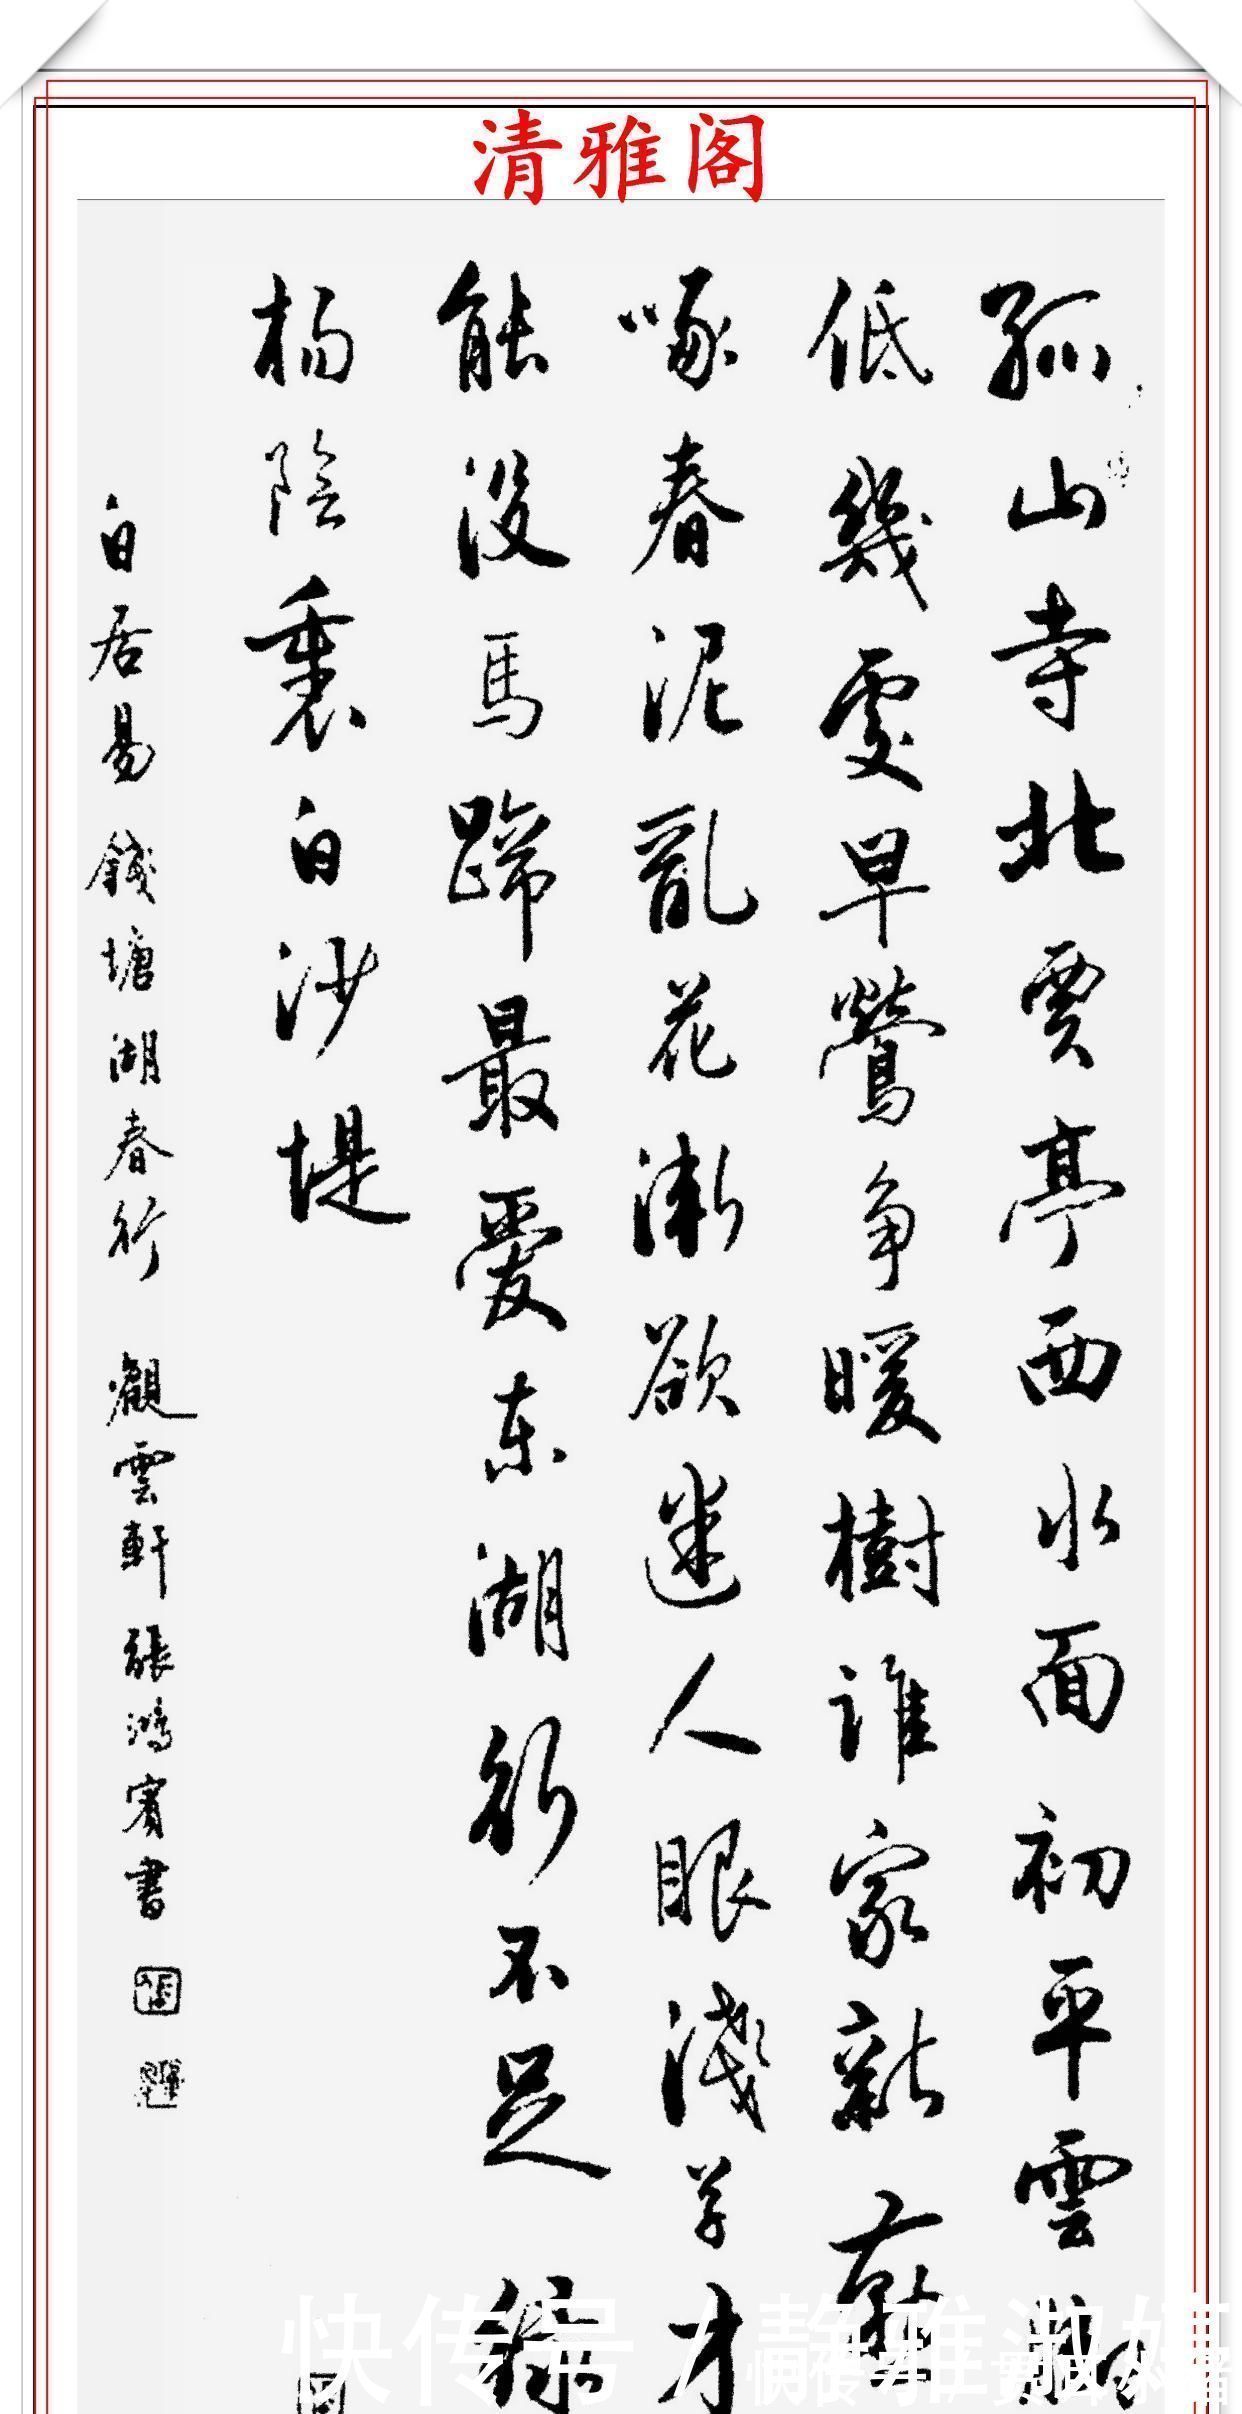 清雅阁
孤山寺北賈亭西水面初平雲腳
低幾處早鶯争暖樹誰家新燕
啄春泥亂花漸欲迷人眼淺草才
能沒馬蹄最愛東湖行不足綠
楊陰裏白沙堤
白居易錢塘湖春行 觀雲軒張鴻賓書
快传号/静雅淑媛